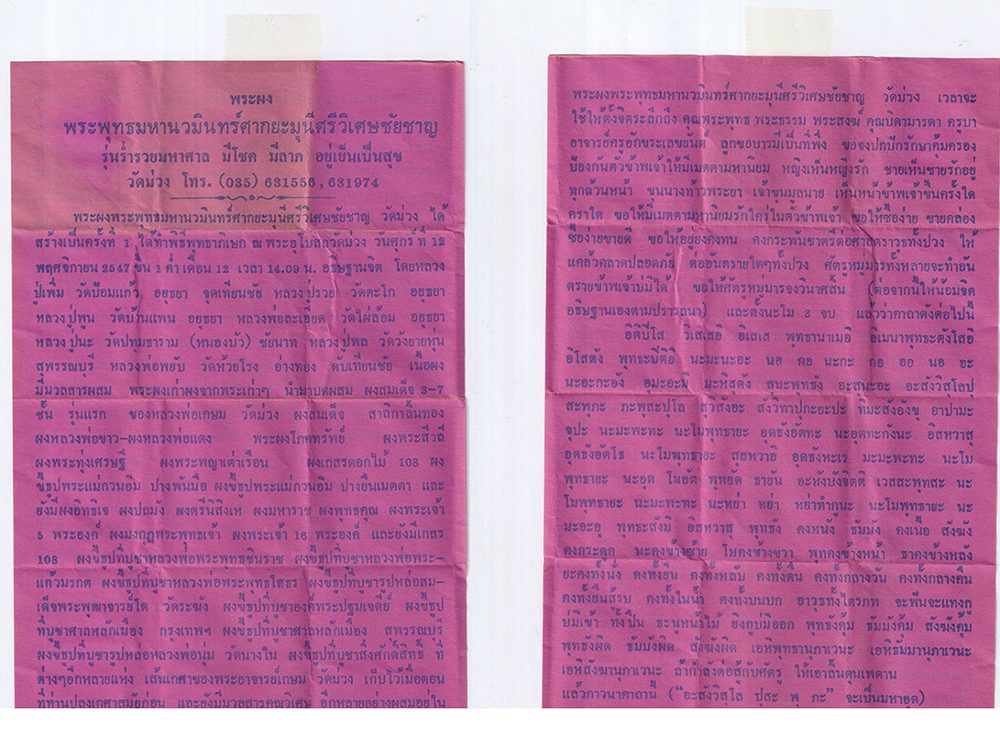 พระผง
พระพุทธมหานวมินทร์ศากยะมุนีศรีวิเศษชัยชาญ
รุ่นร่ำรวยมหาศาล มีโชค มีลาภ อยู่เย็นเป็นสุข
วัดม่วง โทร. (035) 631556, 631974
พระผงพระพุทธมหานวมินทร์ศากยะมุนีศรีวิเศษชัยชาญ วัดม่วง ได้
สร้างเป็นครั้งที่ 1 ได้ทำพิธีพุทธาภิเษก ณ พระอุโบสถวัดม่วง วันศุกร์ ที่ 12
พฤศจิกายน 2547 ขึ้น 1 ค่ำ เดือน 12 เวลา 14.09 น. อธิษฐานจิต โดยหลวง
ปู่เพิ่ม วัดป้อมแก้ว อยุธยา จุดเทียนชัย หลวงปู่รวย วัดตะโก อยุธยา
หลวงปู่พูน วัดบ้านแพน อยุธยา หลวงพ่อละเอียด วัดไผ่ล้อม อยุธยา
หลวงปู่นะ วัดปทุมธาราม (หนองบัว) ชัยนาท หลวงปู่พล วัดวังยายหุ่น
สุพรรณบุรี หลวงพ่อพยับ วัดห้วยโรง อ่างทอง ดับเทียนชัย เนื้อผง
มีมวลสารผสม พระผงเก่าผงจากพระเก่าๆ นำมาบดผสม ผงสมเด็จ 3-7
ชั้น รุ่นแรก ของหลวงพ่อเกษม วัดม่วง ผงสมเด็จ สาลิกาลิ้นทอง
ผงหลวงพ่อขาว-ผงหลวงพ่อแดง พระผงโภคทรัพย์ ผงพระสิวลี
ผงพระทุ่งเศรษฐี ผงพระพญาเต่าเรือน ผงเกสรดอกไม้ 108 ผง
ขี้ธูปพระแม่กวนอิม ปางพันมือ ผงขี้ธูปพระแม่กวนอิม ปางยืนเมตตา และ
ยังมีผงอิทธิเจ ผงปถมัง ผงตรีนิสิงเห ผงมหาราช ผงพุทธคุณ ผงพระเจ้า
5 พระองค์ ผงมงกุฎพระพุทธเจ้า ผงพระเจ้า 16 พระองค์ และยังมีเกสร
108 ผงขี้ธูปที่บูชาหลวงพ่อพระพุทธชินราช ผงขี้ธูปที่บูชาหลวงพ่อพระ-
แก้วมรกต ผงขี้ธูปที่บูชาหลวงพ่อพระพุทธโสธร ผงขี้ธูปที่บูชารูปหล่อสม-
เด็จพระพุฒาจารย์โต วัดระฆัง ผงขี้ธูปที่บูชาองค์พระปฐมเจดีย์ ผงขี้ธูป
ที่บูชาศาลหลักเมือง กรุงเทพฯ ผงขี้ธูปที่บูชาศาลหลักเมือง สุพรรณบุรี
ผงขี้ธูปที่บูชารูปหล่อหลวงพ่อนุ่ม วัดนางใน ผงขี้ธูปที่บูชาสิ่งศักดิ์สิทธิ์ ที่
ต่างๆอีกหลายแห่ง เส้นเกศาของพระอาจารย์เกษม วัดม่วง เก็บไว้เมื่อตอน
ที่ท่านปลงเกศาสมัยก่อน และยังมีมวลสารคุณวิเศษ อีกหลายอย่างผสมอยู่ใน
พระผงพระพุทธมหานวมินทร์ศากยะมุนีศรีวิเศษชัยชาญ วัดม่วง เวลาจะ
ใช้ให้ตั้งจิตระลึกถึง คุณพระพุทธ พระธรรม พระสงฆ์ คุณบิดามารดา ครูบา
อาจารย์ครูอักขระเลขยันต์ ลูกขอบารมีเป็นที่พึ่ง ขอจงปกปักรักษาคุ้มครอง
ป้องกันตัวข้าพเจ้าให้มีเมตตามหานิยม หญิงเห็นหญิงรัก ชายเห็นชายรักอยู่
ทุกถ้วนหน้า ขุนนางท้าวพระยา เจ้าขุนมูลนาย เห็นหน้าข้าพเจ้าขึ้นครั้งใด
คราใด ขอให้มีเมตตามหานิยมรักใคร่ในตัวข้าพเจ้า ขอให้ซื้อง่าย ขายคล่อง
ซื้อง่ายขายดี ขอให้อยู่ยงคงทน คงกระพันชาตรีต่อศาสตราวุธทั้งปวง ให้
แคล้วคลาดปลอดภัย ต่ออันตรายใดๆทั้งปวง ศัตรูหมู่มารทั้งหลายจะทำอัน
ตรายข้าพเจ้าบ่มิได้ ขอให้ศัตรูหมู่มารจงวินาศสิ้น (ต่อจากนี้ให้น้อมจิต
อธิษฐานเองตามปรารถนา) และตั้งนะโม 3 จบ แล้วว่าคาถาดังต่อไปนี้
อิติปิโส วิเสเสอิ อิเสเส พุทธานาเมอิ อิเมนาพุทธะตังโสอิ
อิโสตัง พุทธะปิติอิ
คงกระดูก นะคงข้างซ้าย โมคงข้างขวา พุทคงข้างหน้า ธาคงข้างหลัง
ยะคงทั้งนั่ง คงทั้งยืน คงทั้งหลับ คงทั้งตื่น คงทั้งกลางวัน คงทั้งกลางคืน
คงทั้งในน้ำ คงทั้งบนบก อาวุธทั้งไตรภพ จะฟันจะแทงก็
บ่มิเข้า ทั้งปืน ธะนูหน้าไม้ ยิงกูบ่มิออก พุทธังคุ้ม ธัมมังคุ้ม สังฆังคุ้ม
พุทธังผิด ธัมมังผิด สังฆังผิด เอหิพุทธานุภาเวนะ เอหิธัมมานุภาเวนะ
เอหิสังฆานุภาเวนะ ถ้ากำลังต่อสู้กับศัตรู ให้เอาลิ้นดุนเพดาน
แล้วภาวนาคาถานี้ ("อะสังวิสุโล ปุสะ พุ ภะ" จะเป็นมหาอุด)